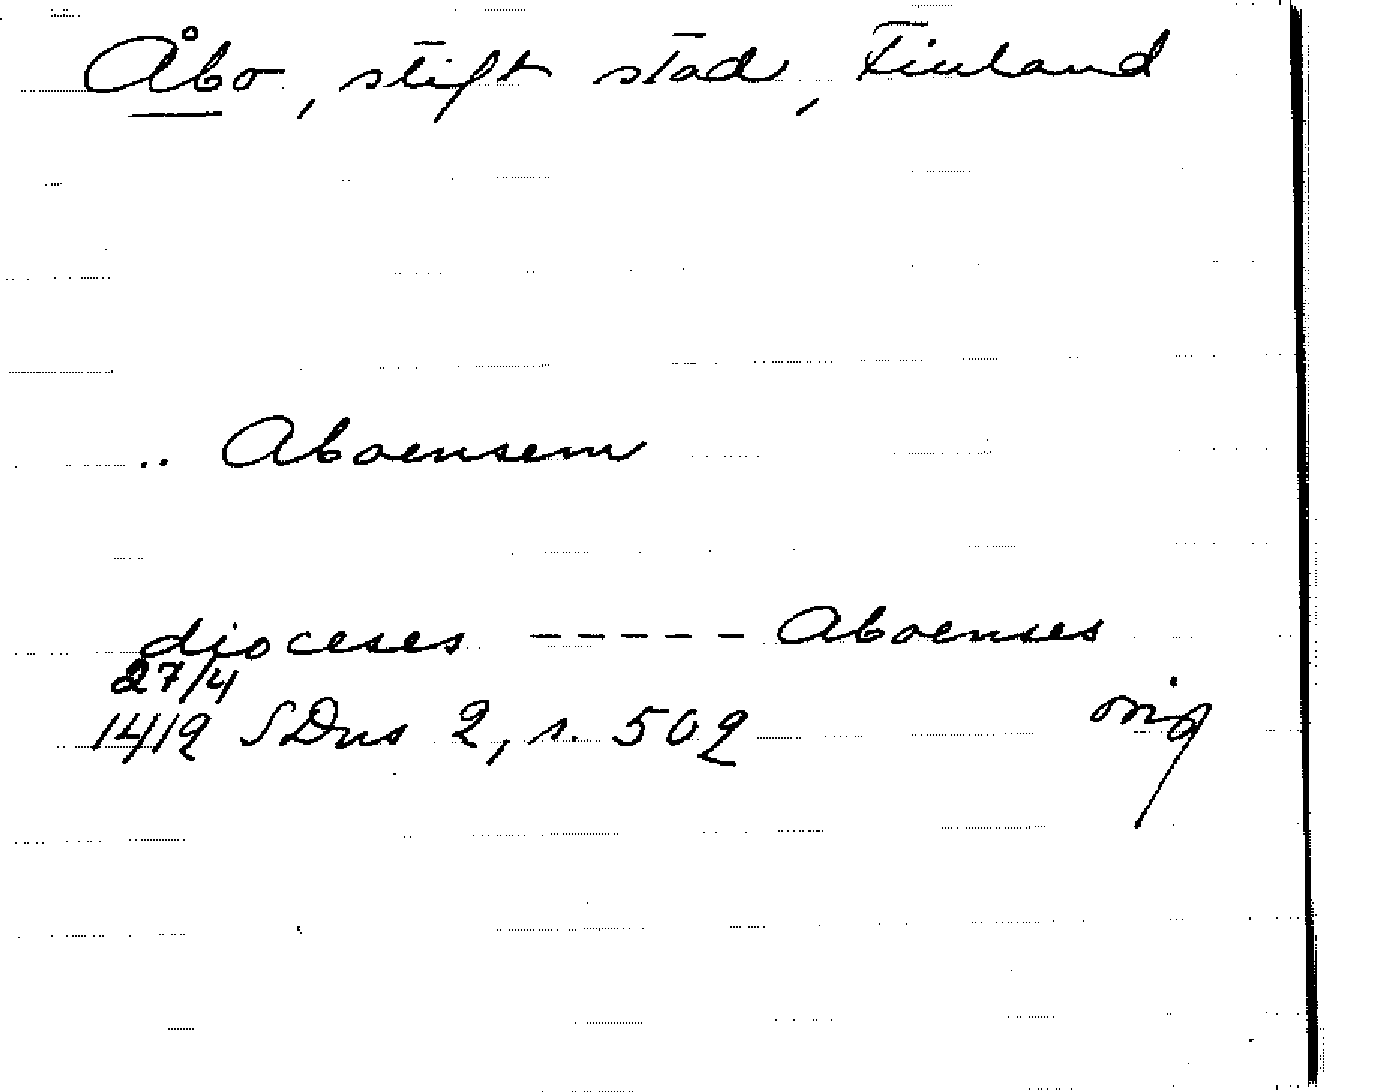 Åbo, stift stad, Finland
.. Aboensem
dioceses ----- Aboenses
27/4
1412 SDns 2, s. 502 orig